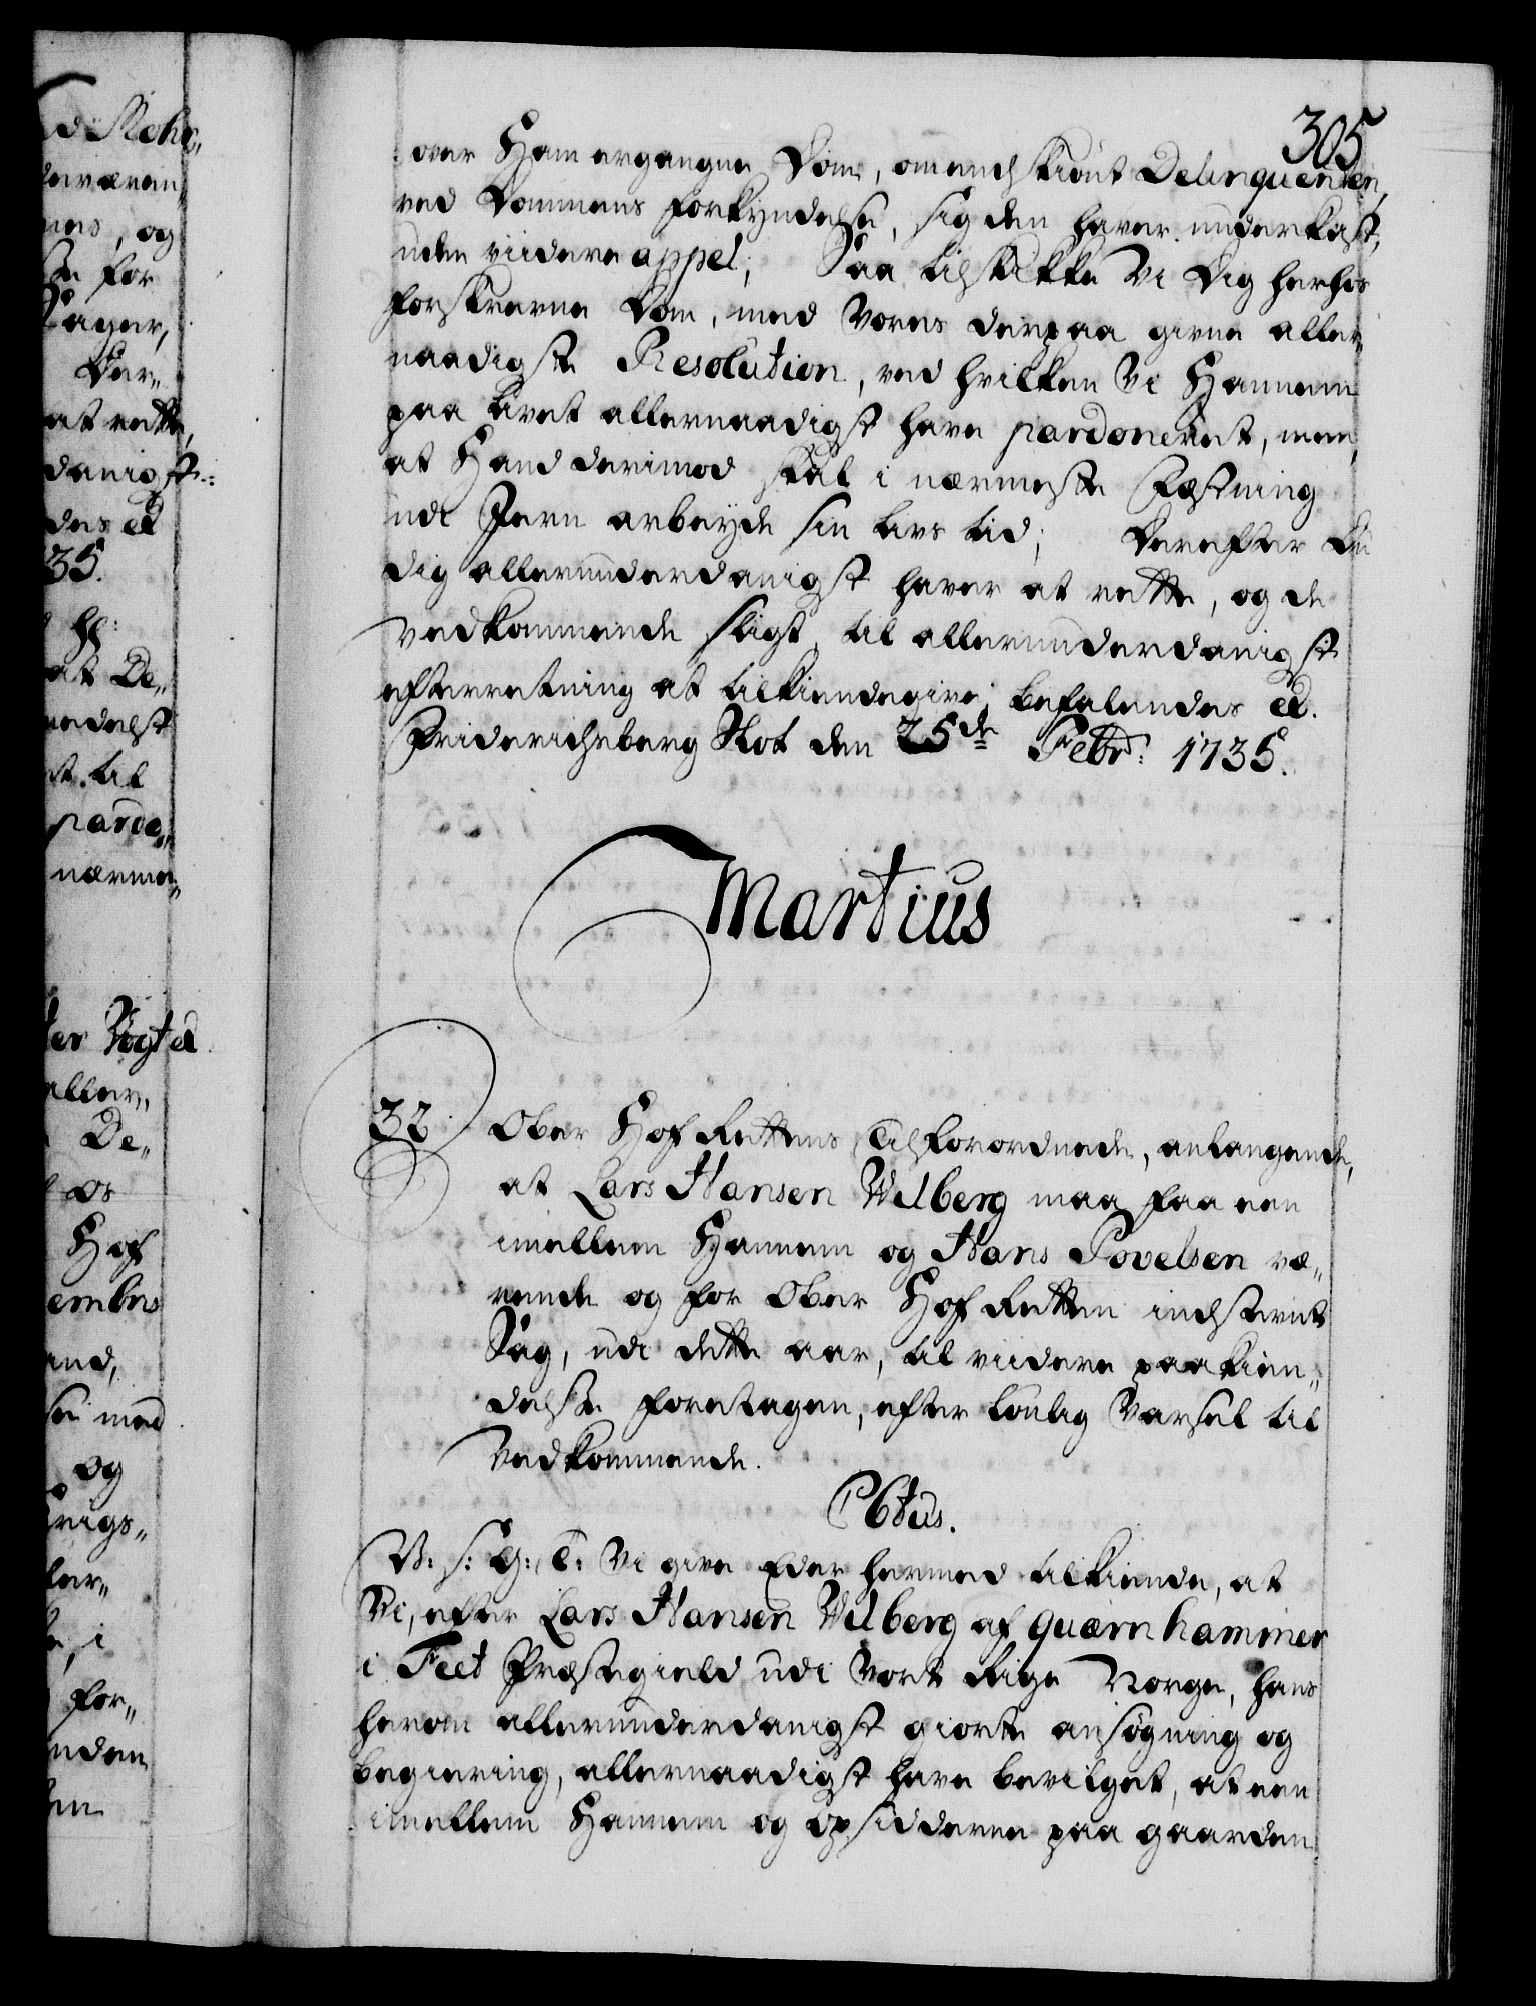 305
over Ham ergangne Dom, omendskiønt Delinquenten,
ved Dommens forkyndelse, sig den haver underkast,
uden viidere appel; Saa tilskikke Vi Dig herhos
forskrevne Dom, med Vores derpaa givne aller„
naadigste Resolution, ved hvilken Vi Hannem
paa Livet allernaadigst have pardoneret, men
at Hand derimod skal i nærmeste Fæstning
udi Jern arbeyde sin Livs tid; Derefter Du
dig allerunderdanigst haver at rette, og de
Vedkommende sligt, til allerunderdanigst
efterretning at tilkiendegive; befalendes etc.
Friderichsberg Slot den 25de Febr: 1735.
Martius
32. Ober Hof Rettens Tilforordnede, anlangende,
at Lars Hansen Wilberg maa faa een
imellem Hannem og Hans Povelsen væ„
rende og for Ober Hof Retten indstevnt
Sag, udi dette aar, til viidere paakien„
delse foretagen, efter Lovlig Varsel til
Vedkommende.
C6tus.
V: s: G: T: Vi give Eder hermed tilkiende, at
Vi, efter Lars Hansen Wilberg af Quærnhammer
i Feet Præstegield udi Vort Rige Norge, hans
herom allerunderdanigst giorte ansøgning og
begiering, allernaadigst have bevilget, at een
imellem Hannem og Opsidderne paa gaarden